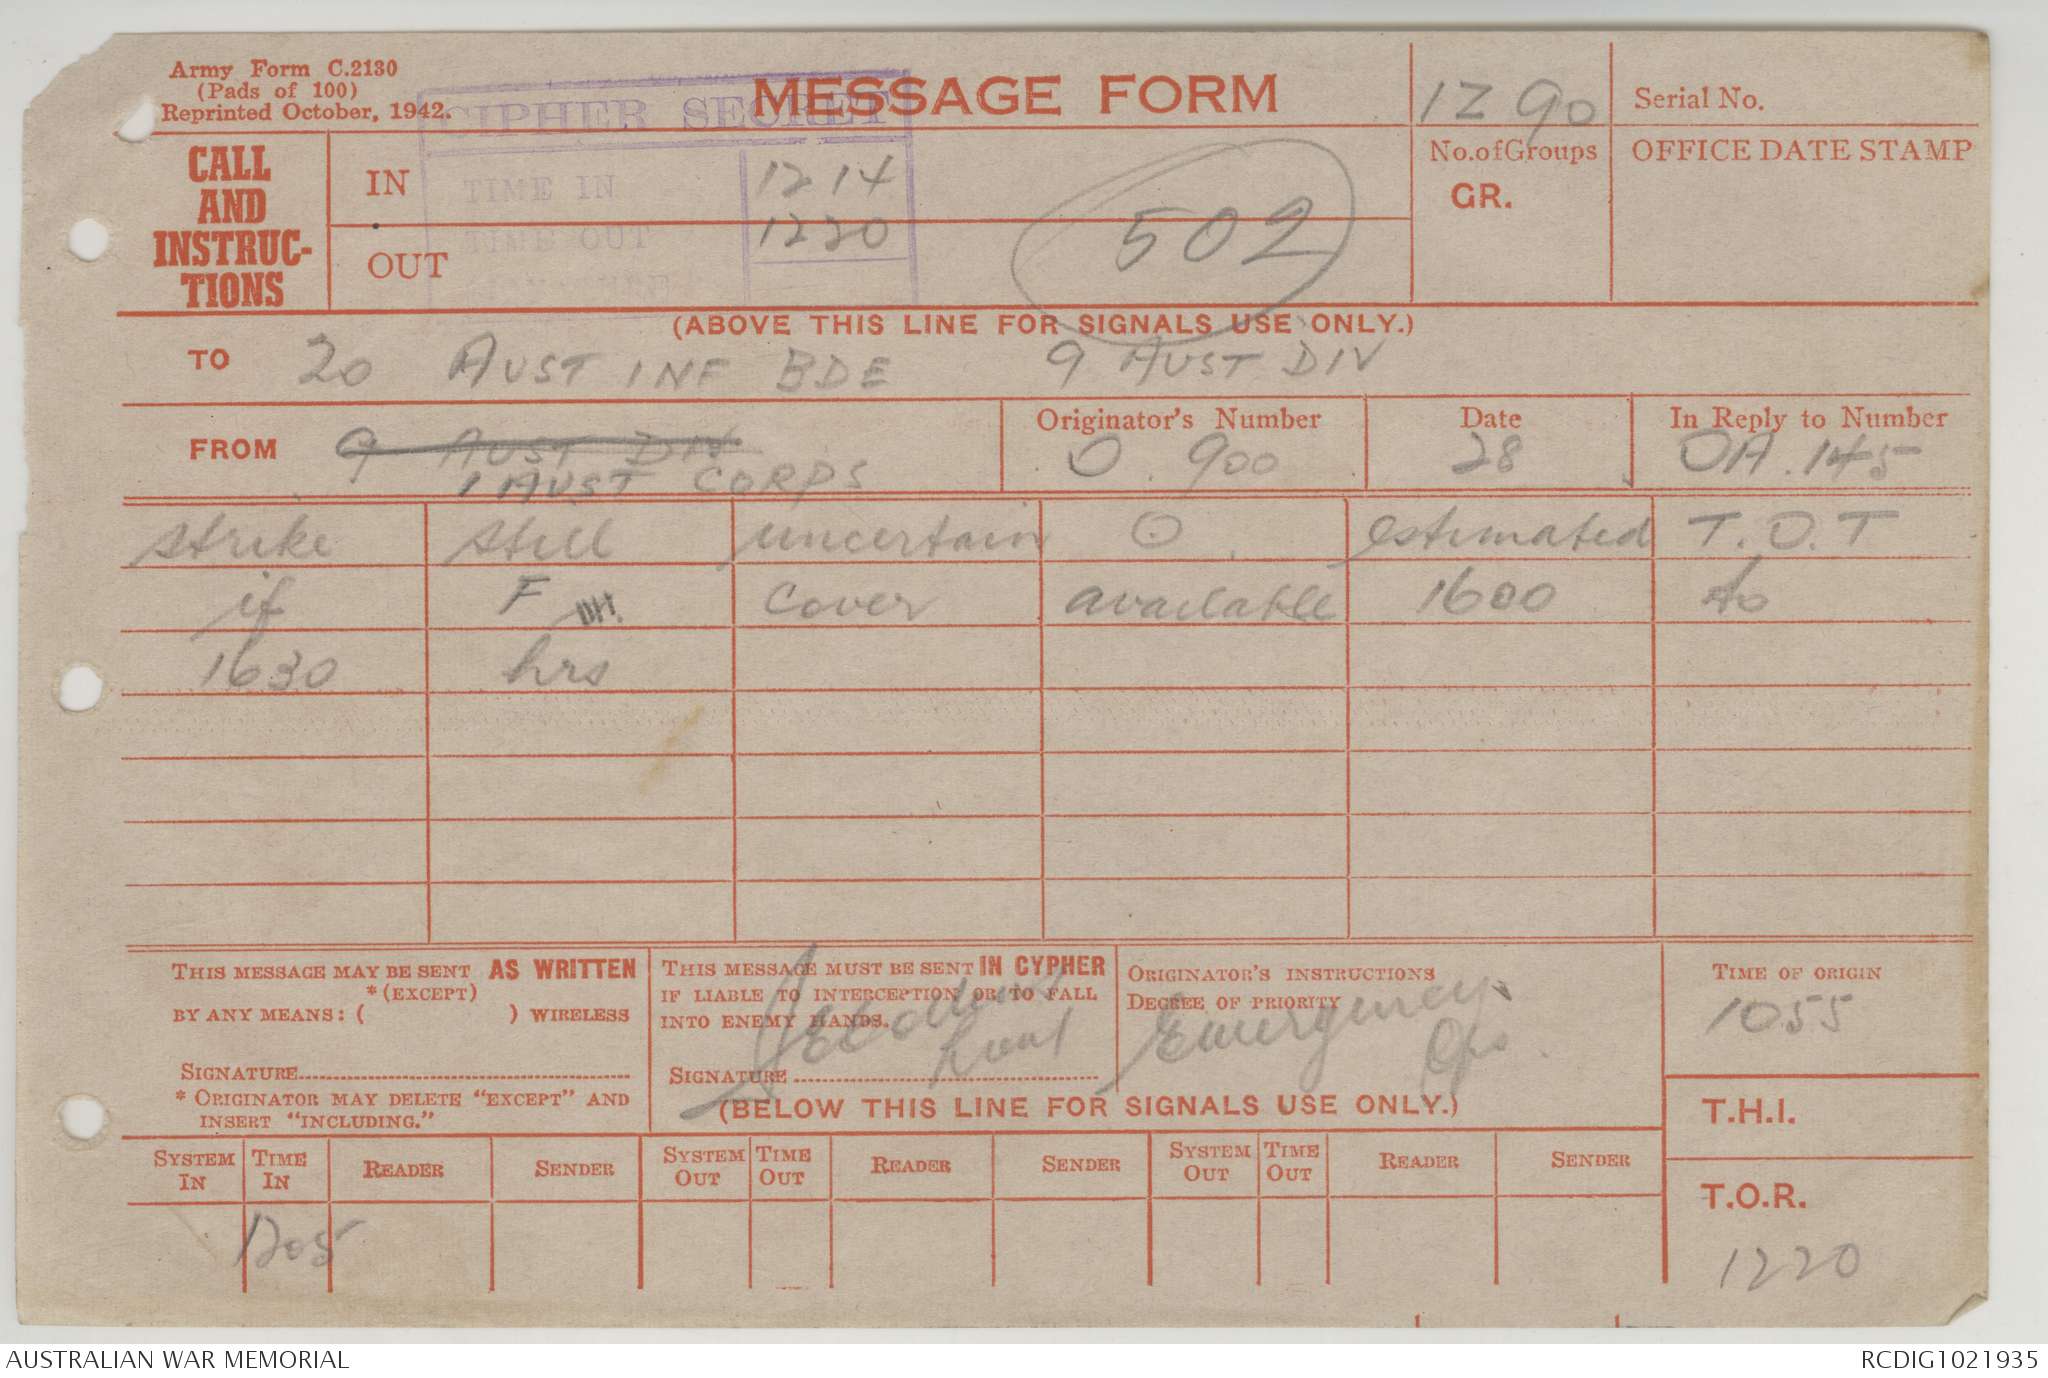 Army Form C.2130
(Pads of 100)
Reprinted October, 1942.
MESSAGE FORM
1Z 90
Serial No.
CIPHER SECRET
CALL AND INSTRUC-TIONS
IN
TIME IN
1214
No. of Groups
GR.
OFFICE DATE STAMP
OUT
TIME OUT
1220
502
(ABOVE THIS LINE FOR SIGNALS USE ONLY.)
TO 20 AUST INF BDE 9 AUST DIV
FROM 9 AUST DIV
1 AUST CORPS
Originator's Number
O. 900
Date
28
In Reply to Number
OA.145
strike still uncertain O. estimated T.O.T
if F cover available 1600 to
1630 hrs
THIS MESSAGE MAY BE SENT AS WRITTEN
*(EXCEPT)
BY ANY MEANS: ( ) WIRELESS
SIGNATURE
* ORIGINATOR MAY DELETE "EXCEPT" AND
INSERT "INCLUDING."
THIS MESSAGE MUST BE SENT IN CYPHER
IF LIABLE TO INTERCEPTION OR TO FALL
INTO ENEMY HANDS.
SIGNATURE
ORIGINATOR'S INSTRUCTIONS
DEGREE OF PRIORITY
Emergency
Ops.
TIME OF ORIGIN
1055
(BELOW THIS LINE FOR SIGNALS USE ONLY.)
T.H.I.
SYSTEM IN
TIME IN
READER
SENDER
SYSTEM OUT
TIME OUT
READER
SENDER
SYSTEM OUT
TIME OUT
READER
SENDER
T.O.R.
1205
1220
AUSTRALIAN WAR MEMORIAL
RCDIG1021935